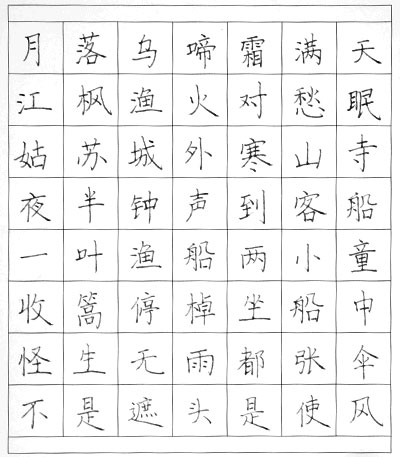 月落乌啼霜满天
江枫渔火对愁眠
姑苏城外寒山寺
夜半钟声到客船
一叶渔船两小童
收篙停棹坐船中
怪生无雨都张伞
不是遮头是使风